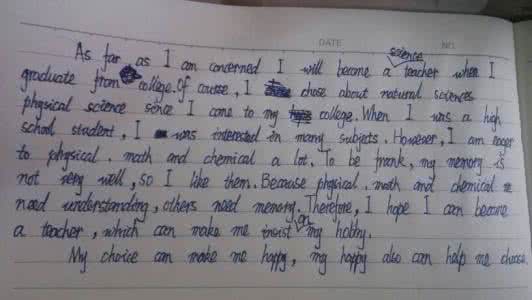 DATE NO.
As far as I am concerned I will become a science teacher when I
graduate from college. Of course, I chose about natural sciences
physical science since I come to my college. When I was a high
school student, I was interested in many subjects. However, I am eager
to physical. math and chemical a lot. To be frank, my memory is
not very well, so I like them. Because physical. math and chemical
need understanding, others need memory. Therefore, I hope I can become
a teacher, which can make me insist on my hobby.
My choice can make me happy, my happy also can help me choose.